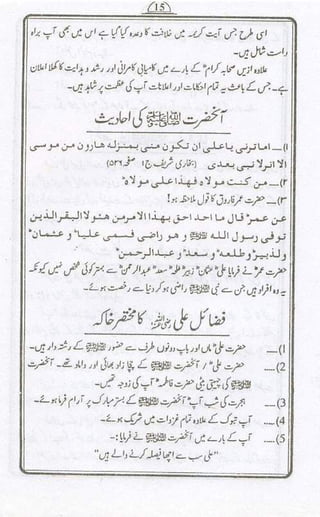 15
اسی طرح جس آیت کریمہ میں خلافت کا وعدہ کیا گیا ہے اس میں بھی آپ براہ
راست شامل ہیں۔
علاوہ ازیں صحابہ کرامؓ کے بارے میں کامیابی کامرانی اور رشد و ہدایت کا کھلا اعلان
ہے۔ جس کے باعث یہ تمام احکامات اور اعلانات آپ کی عظمت پر شاہد ہیں۔
آنحضرت ﷺ کی احادیث
۱)— اما ترنی یا علی ان تکون منی بمنزلہ ھارون من موسی
الا انہ لا نبی بعدی (بخاری شریف ج۱ صفحہ ۵۲۶)
۲)— من کنت مولاہ فھذا علی مولاہ
۳)— حضرت عمر فاروقؓ کا قول ملاحظہ ہو!
عن عمرؓ قال ما احد احق بھذا الامر من ھئولاء النفر الذین
توفی رسول اللہ ﷺ و ھو راضی فسمی علیاؓ و عثمانؓ
ولذبیرؓ وطلعہؓ و سعدؓ و عبدالرحمنؓ
حضرت عمرؓ نے فرمایا علیؓ عثمانؓ زبیرؓ طلحہؓ سعدؓ عبدالرحمنؓ سے بہتر کوئی شخص نہیں کیونکہ
یہ وہ افراد ہیں جس سے نبی ﷺ راضی ہو کر دنیا سے رخصت ہوئے۔
فضائل علی رضی اللہ عنہ کا مختصر خاکہ
1)— حضرت علیؓ ماں اور باپ دونوں طرف سے حضور ﷺ کے رشتہ دار ہیں۔
2)— حضرت علیؓ آنحضرت ﷺ کے چچا زاد بھائی اور داماد تھے۔ آنحضرت
ﷺ کی چہیتی بیٹی حضرت فاطمہؓ آپ کی زوجہ تھیں۔
3)— ہجرت کی شب آپؓ آنحضرت ﷺ کے بستر مبارک پر آرام فرما ہوئے۔
4)— آپ تبوک کے علاوہ تمام غزوات میں شریک ہوئے۔
5)— آپ کے بارے میں آنحضرت ﷺ نے فرمایا:۔
"علی سب سے اچھا فیصلہ کرنے والے ہیں"